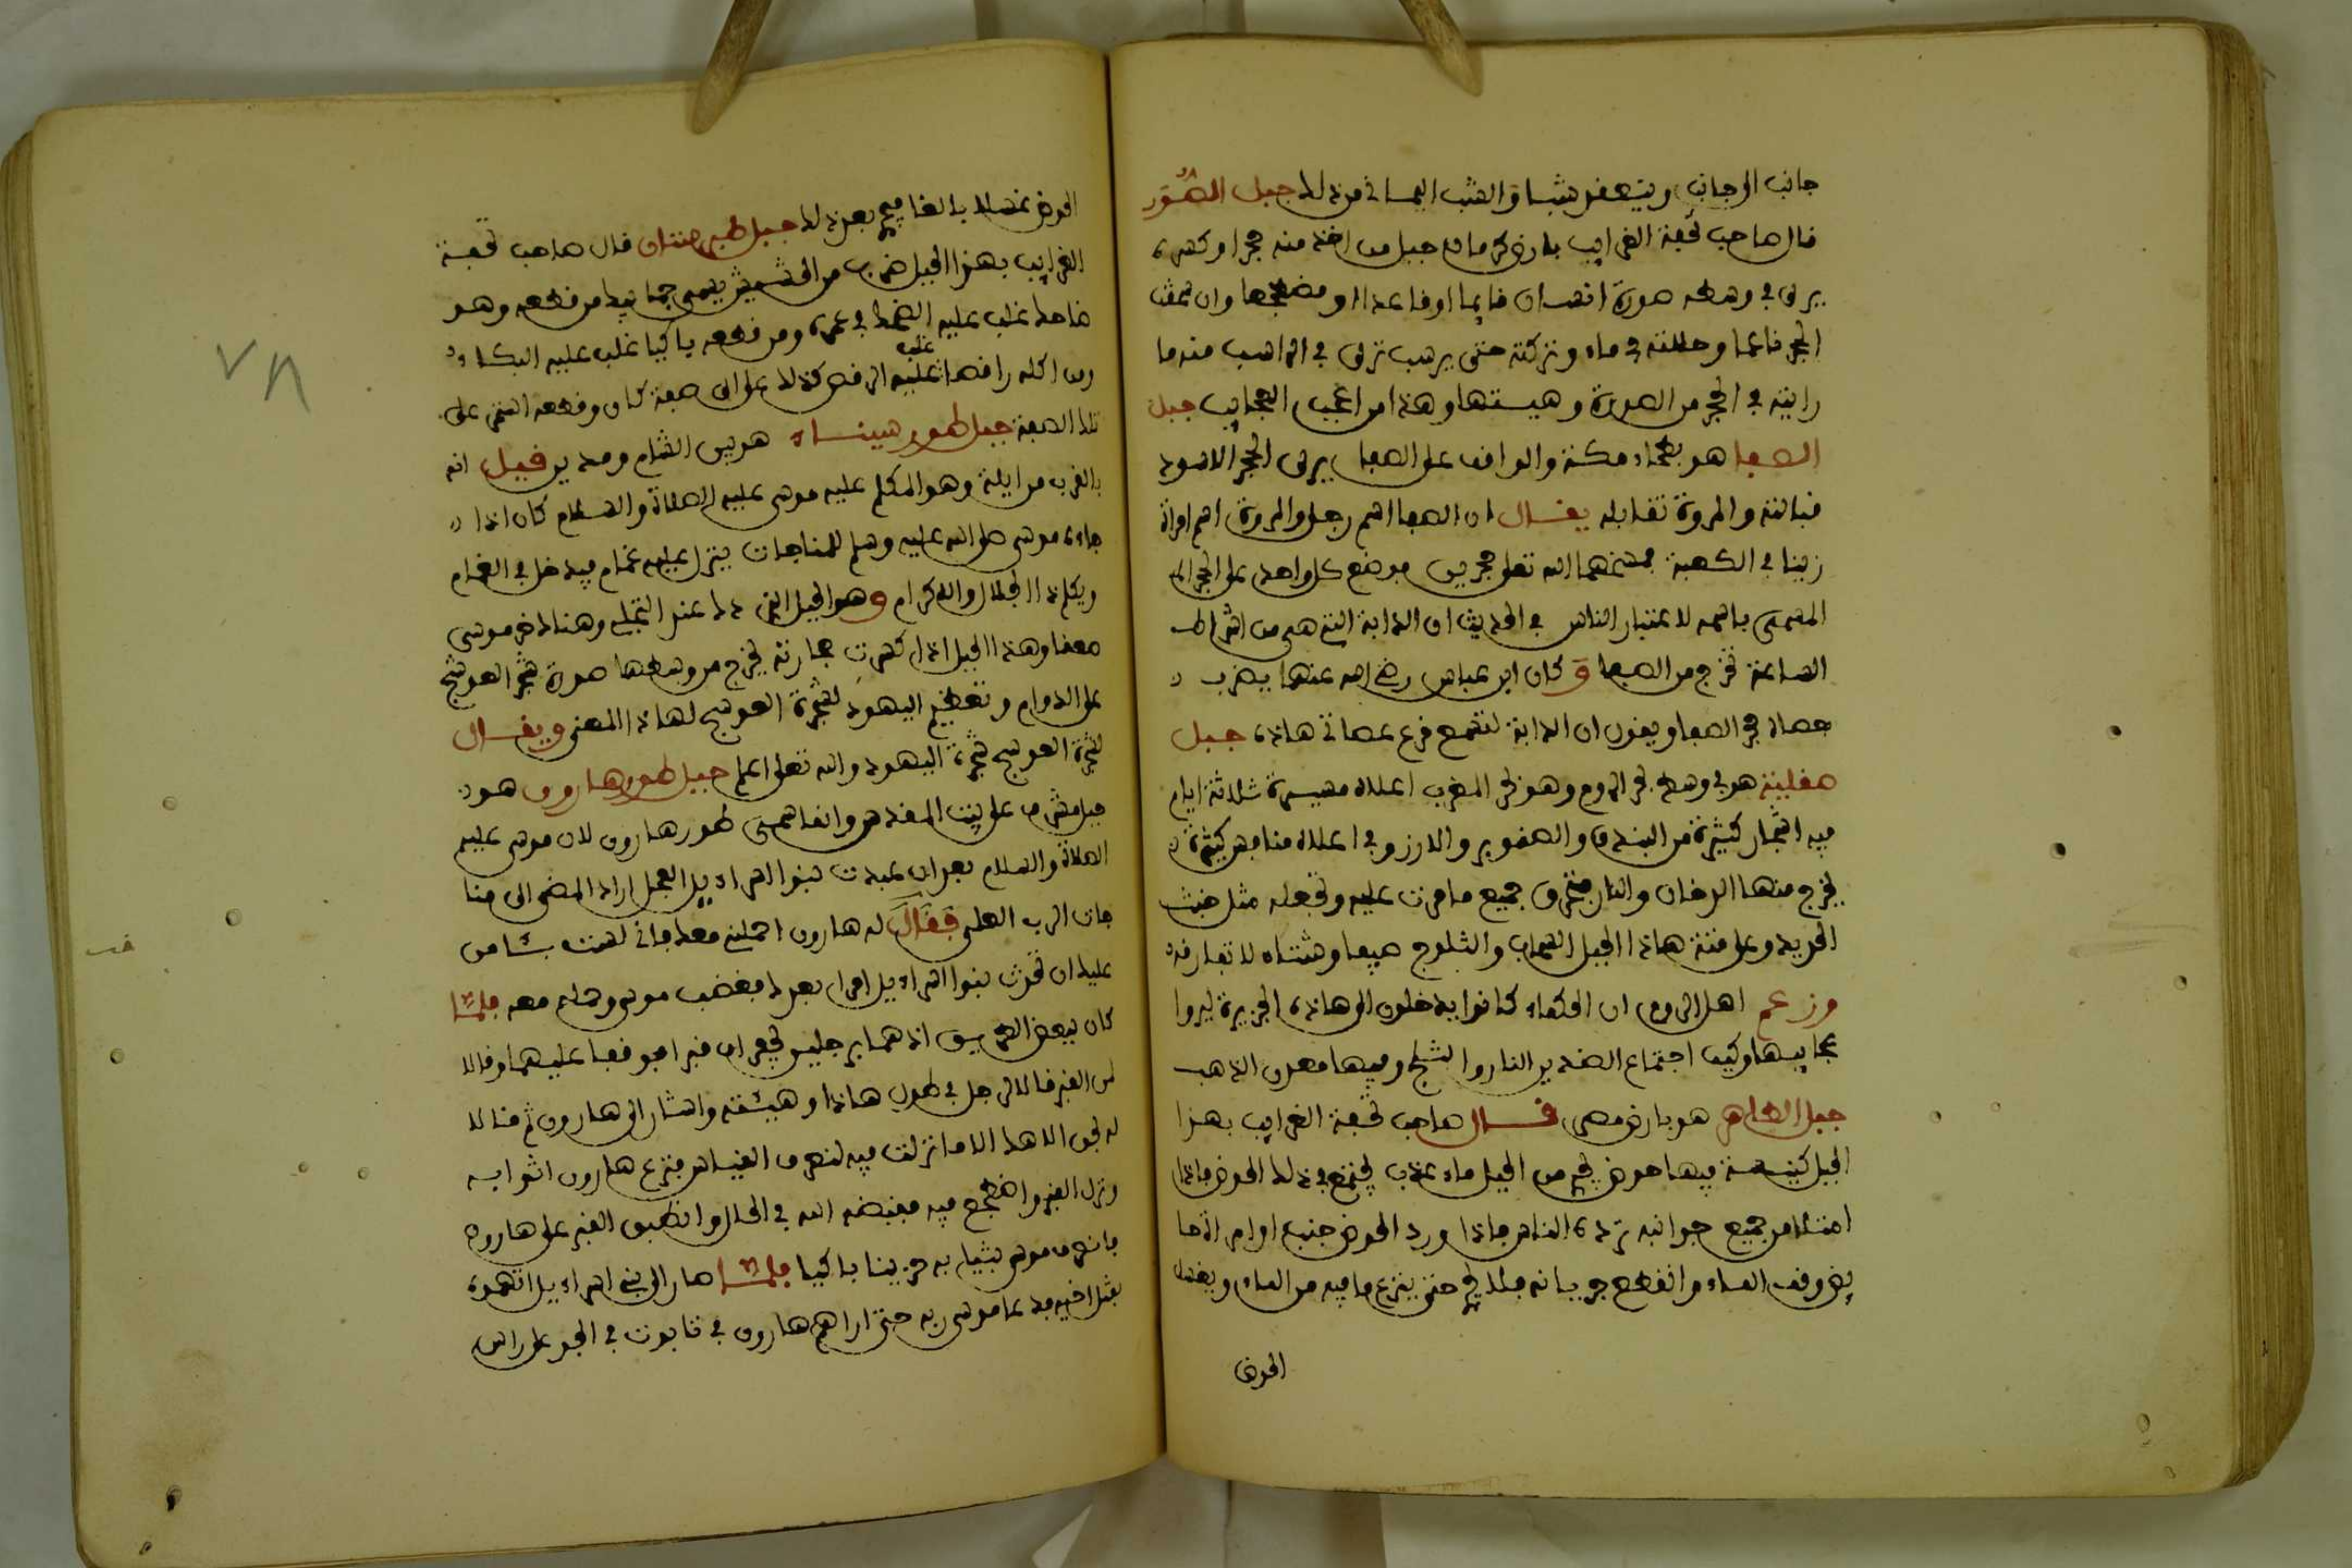 جانب الى جانب وينعقد شبا والشب اليماني من ذلك جبل الصُّوَر
قال صاحب تحفة الغرايب بارض كرمان جبل من اخذ منه حجرا وكسره
يرى في وسطه صورة انسان قايما او قاعدا او مضطجعا وان سحقت
الحجر ناعما وحللته في ماء وتركته حتى يرسب ترى في الراسب منه ما
رايته في الحجر من الصورة وهيئتها وهذا من اعجب العجايب جبل
الصفا هو بطحاء مكة والواقف على الصفا يرى الحجر الاسود
قبالته والمروة تقابله يقال ان الصفا اسم رجل والمروة اسم امراة
زنيا في الكعبة فمسخهما الله تعلى حجرين فوضع كل واحد على الحجر
المسمى باسمه لاعتبار الناس في الحديث ان الدابة التي هي من اشراط
الساعة تخرج من الصفا وَ كان ابن عباس رضي الله عنهما يضرب
عصاه حجر الصفا ويقول ان الدابة لتسمع قرع عصاتي هاذه جبل
صقلية هو في وسط بحر الروم وهو بحر المغرب اعلاه مسيرة ثلاثة ايام
فيه اشجار كثيرة من البندق والصنوبر والارز وفي اعلاه منافس كثيرة
يخرج منها الدخان والنار فتحرق جميع ما مرت عليه وتجعله مثل خبث
الحديد وعلى قنة هاذا الجبل السحاب والثلوج صيفا وشتاء لا تفارقه
وزعم اهل الروم ان الحكماء كانوا يدخلون الى هاذه الجزيرة ليروا
عجايبها وكيف اجتماع الضدين النار والثلج وفيها معدن الذهب
جبل الطاهر هو بارض مصر قال صاحب تحفة الغرايب بهذا
الجبل كنيسة فيها حوض يجري من الجبل ماء عذب يجتمع في ذلك الحوض فاذا
امتلا من جميع جوانبه ترده الناس فاذا ورد الحوض جنب او امراة حا
يض وقف الماء وانقطع جريانه فلا يجري حتى ينزع ما فيه من الماء ويغسل
الحوض
الحوض غسلا بالغا فيجري بعد ذلك جبل طبرستان قال صاحب تحفة
الغرايب بهذا الجبل ضرب من الحشيش يسمى جمابيدا من قطعه وهو
ضاحك غلب عليه الضحك في عمره ومن قطعه باكيا غلب عليه البكاء
ومن اكله راقصا غلب عليه الرقص كذلك على اي صفة كان وقطعه استمر على
تلك الصفة جبل طور سيناء هو بين الشام ومدين قيل انه
بالقرب من ايلة وهو المكلم عليه موسى عليه الصلاة والسلام كان اذا
جاءه موسى صلى الله عليه وسلم للمناجات ينزل عليه غمام فيدخل في الغمام
ويكلم ذا الجلال والاكرام وهو الجبل الذي دك عند التجلي وهناك خر موسى
صعقا وهذا الجبل اذا كسرت حجارته يخرج من وسطها صورة شجر العوسج
على الدوام وتعظيم اليهود لشجرة العوسج لهاذا المعنى ويقال
لشجرة العوسج شجرة اليهود والله تعلى اعلم جبل طور هارون هو
جبل مشرف على بيت المقدس وانما سمي طور هارون لان موسى عليه
الصلاة والسلام بعد ان عبدت بنوا اسراءيل العجل اراد المضي الى منا
جات الرب العلى فَقَالَ له هارون احملني معك فاني لست بـئامن
عليك ان تحدث بنوا اسراءيل امرا بعدك فغضب موسى وحمله معه فلما
كان ببعض الطريق اذ هما برجلين يحفران قبرا فوقفا عليهما وقالا
لمن القبر قالا لرجل في طول هاذا وهيئته واشار الى هارون ثم قالا
له بحق الاهك الا ما نزلت فيه لنعرف القياس فنزع هارون اثوابه
ونزل القبر واضطجع فيه فقبضه الله في الحال وانطبق القبر على هارون
فانصرف موسى بثيابه حزينا باكيا فلما صار الى بني اسراءيل اتهموه
بقتل اخيه فدعا موسى ربه حتى اراهم هارون في تابوت في الجو على راس